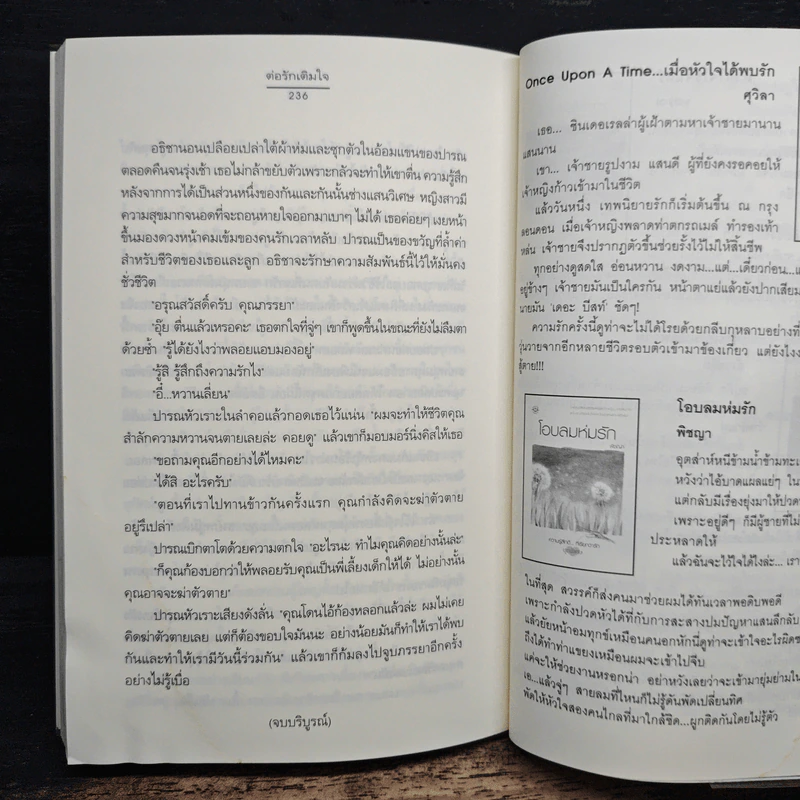 ต่อรักเติมใจ
236
อธิชานอนเปลือยเปล่าใต้ผ้าห่มและซุกตัวในอ้อมแขนของปารณ
ตลอดคืนจนรุ่งเช้า เธอไม่กล้าขยับตัวเพราะกลัวจะทำให้เขาตื่น ความรู้สึก
หลังจากการได้เป็นส่วนหนึ่งของกันและกันนั้นช่างแสนวิเศษ หญิงสาวมี
ความสุขมากจนอดที่จะถอนหายใจออกมาเบาๆ ไม่ได้ เธอค่อยๆ เงยหน้า
ขึ้นมองดวงหน้าคมเข้มของคนรักเวลาหลับ ปารณเป็นของขวัญที่ล้ำค่า
สำหรับชีวิตของเธอและลูก อธิชาจะรักษาความสัมพันธ์นี้ไว้ให้มั่นคง
ชั่วชีวิต
"อรุณสวัสดิ์ครับ คุณภรรยา"
"อุ๊ย ตื่นแล้วเหรอคะ" เธอตกใจที่จู่ๆ เขาก็พูดขึ้นในขณะที่ยังไม่ลืมตา
ด้วยซ้ำ "รู้ได้ยังไงว่าพลอยแอบมองอยู่"
"รู้สิ รู้สึกถึงความรักไง"
"อี๋...หวานเลี่ยน"
ปารณหัวเราะในลำคอแล้วกอดเธอไว้แน่น "ผมจะทำให้ชีวิตคุณ
สำลักความหวานจนตายเลยล่ะ คอยดู" แล้วเขาก็มอบมอร์นิ่งคิสให้เธอ
"ขอถามคุณอีกอย่างได้ไหมคะ"
"ได้สิ อะไรครับ"
"ตอนที่เราไปทานข้าวกันครั้งแรก คุณกำลังคิดจะฆ่าตัวตาย
อยู่รึเปล่า"
ปารณเบิกตาโตด้วยความตกใจ "อะไรนะ ทำไมคุณคิดอย่างนั้นล่ะ"
"ก็คุณก้องบอกว่าให้พลอยรับคุณเป็นพี่เลี้ยงเด็กให้ได้ ไม่อย่างนั้น
คุณอาจจะฆ่าตัวตาย"
ปารณหัวเราะเสียงดังลั่น "คุณโดนไอ้ก้องหลอกแล้วล่ะ ผมไม่เคย
คิดฆ่าตัวตายเลย แต่ก็ต้องขอบใจมันนะ อย่างน้อยมันก็ทำให้เราได้พบ
กันและทำให้เรามีวันนี้ร่วมกัน" แล้วเขาก็ก้มลงไปจูบภรรยาอีกครั้ง
อย่างไม่รู้เบื่อ
(จบบริบูรณ์)
Once Upon A Time...เมื่อหัวใจได้พบรัก
ศุวิลา
เธอ... ซินเดอเรลล่าผู้เฝ้าตามหาเจ้าชายมานาน
แสนนาน
เขา... เจ้าชายรูปงาม แสนดี ผู้ที่ยังคงรอคอยให้
เจ้าหญิงก้าวเข้ามาในชีวิต
แล้ววันหนึ่ง เทพนิยายรักก็เริ่มต้นขึ้น ณ กรุง
ลอนดอน เมื่อเจ้าหญิงพลาดท่าตกรถเมล์ ทำรองเท้า
หล่น เจ้าชายจึงปรากฏตัวขึ้นช่วยรั้งไว้ไม่ให้สิ้นชีพ
ทุกอย่างดูสดใส อ่อนหวาน งดงาม...แต่...เดี๋ยวก่อน...
อยู่ข้างๆ เจ้าชายมันเป็นใครกัน หน้าตาแย่แล้วยังปากเสีย
นายมัน 'เดอะ บีสท์' ชัดๆ!
ความรักครั้งนี้ดูท่าจะไม่ได้โรยด้วยกลีบกุหลาบอย่างที่
วุ่นวายจากอีกหลายชีวิตรอบตัวเข้ามาข้องเกี่ยว แต่ยังไง
สู้ตาย!!!
โอบลมห่มรัก
โอบลมห่มรัก
พิชญา
อุตส่าห์หนีข้ามน้ำข้ามทะเ
หวังว่าไอ้บาดแผลแย่ๆ ใน
แต่กลับมีเรื่องยุ่งมาให้ปวด
เพราะอยู่ดีๆ ก็มีผู้ชายที่ไม่
ประหลาดให้
แล้วฉันจะไว้ใจได้ไงล่ะ... เรา
ในที่สุด สวรรค์ก็ส่งคนมาช่วยผมได้ทันเวลาพอดิบพอดี
เพราะกำลังปวดหัวได้ที่กับการสะสางปมปัญหาแสนลึกลับ
แล้วยัยหน้าอมทุกข์เหมือนคนอกหักนี่ดูท่าจะเข้าใจอะไรผิด
ถึงได้ทำท่าแขยงเหมือนผมจะเข้าไปจีบ
แค่จะให้ช่วยงานหรอกน่า อย่าหวังเลยว่าจะเข้ามายุ่มย่าม
เอ...แล้วจู่ๆ สายลมที่ไหนก็ไม่รู้ดันพัดเปลี่ยนทิศ
พัดให้หัวใจสองคนไกลที่มาใกล้ชิด...ผูกติดกันโดยไม่รู้ตัว